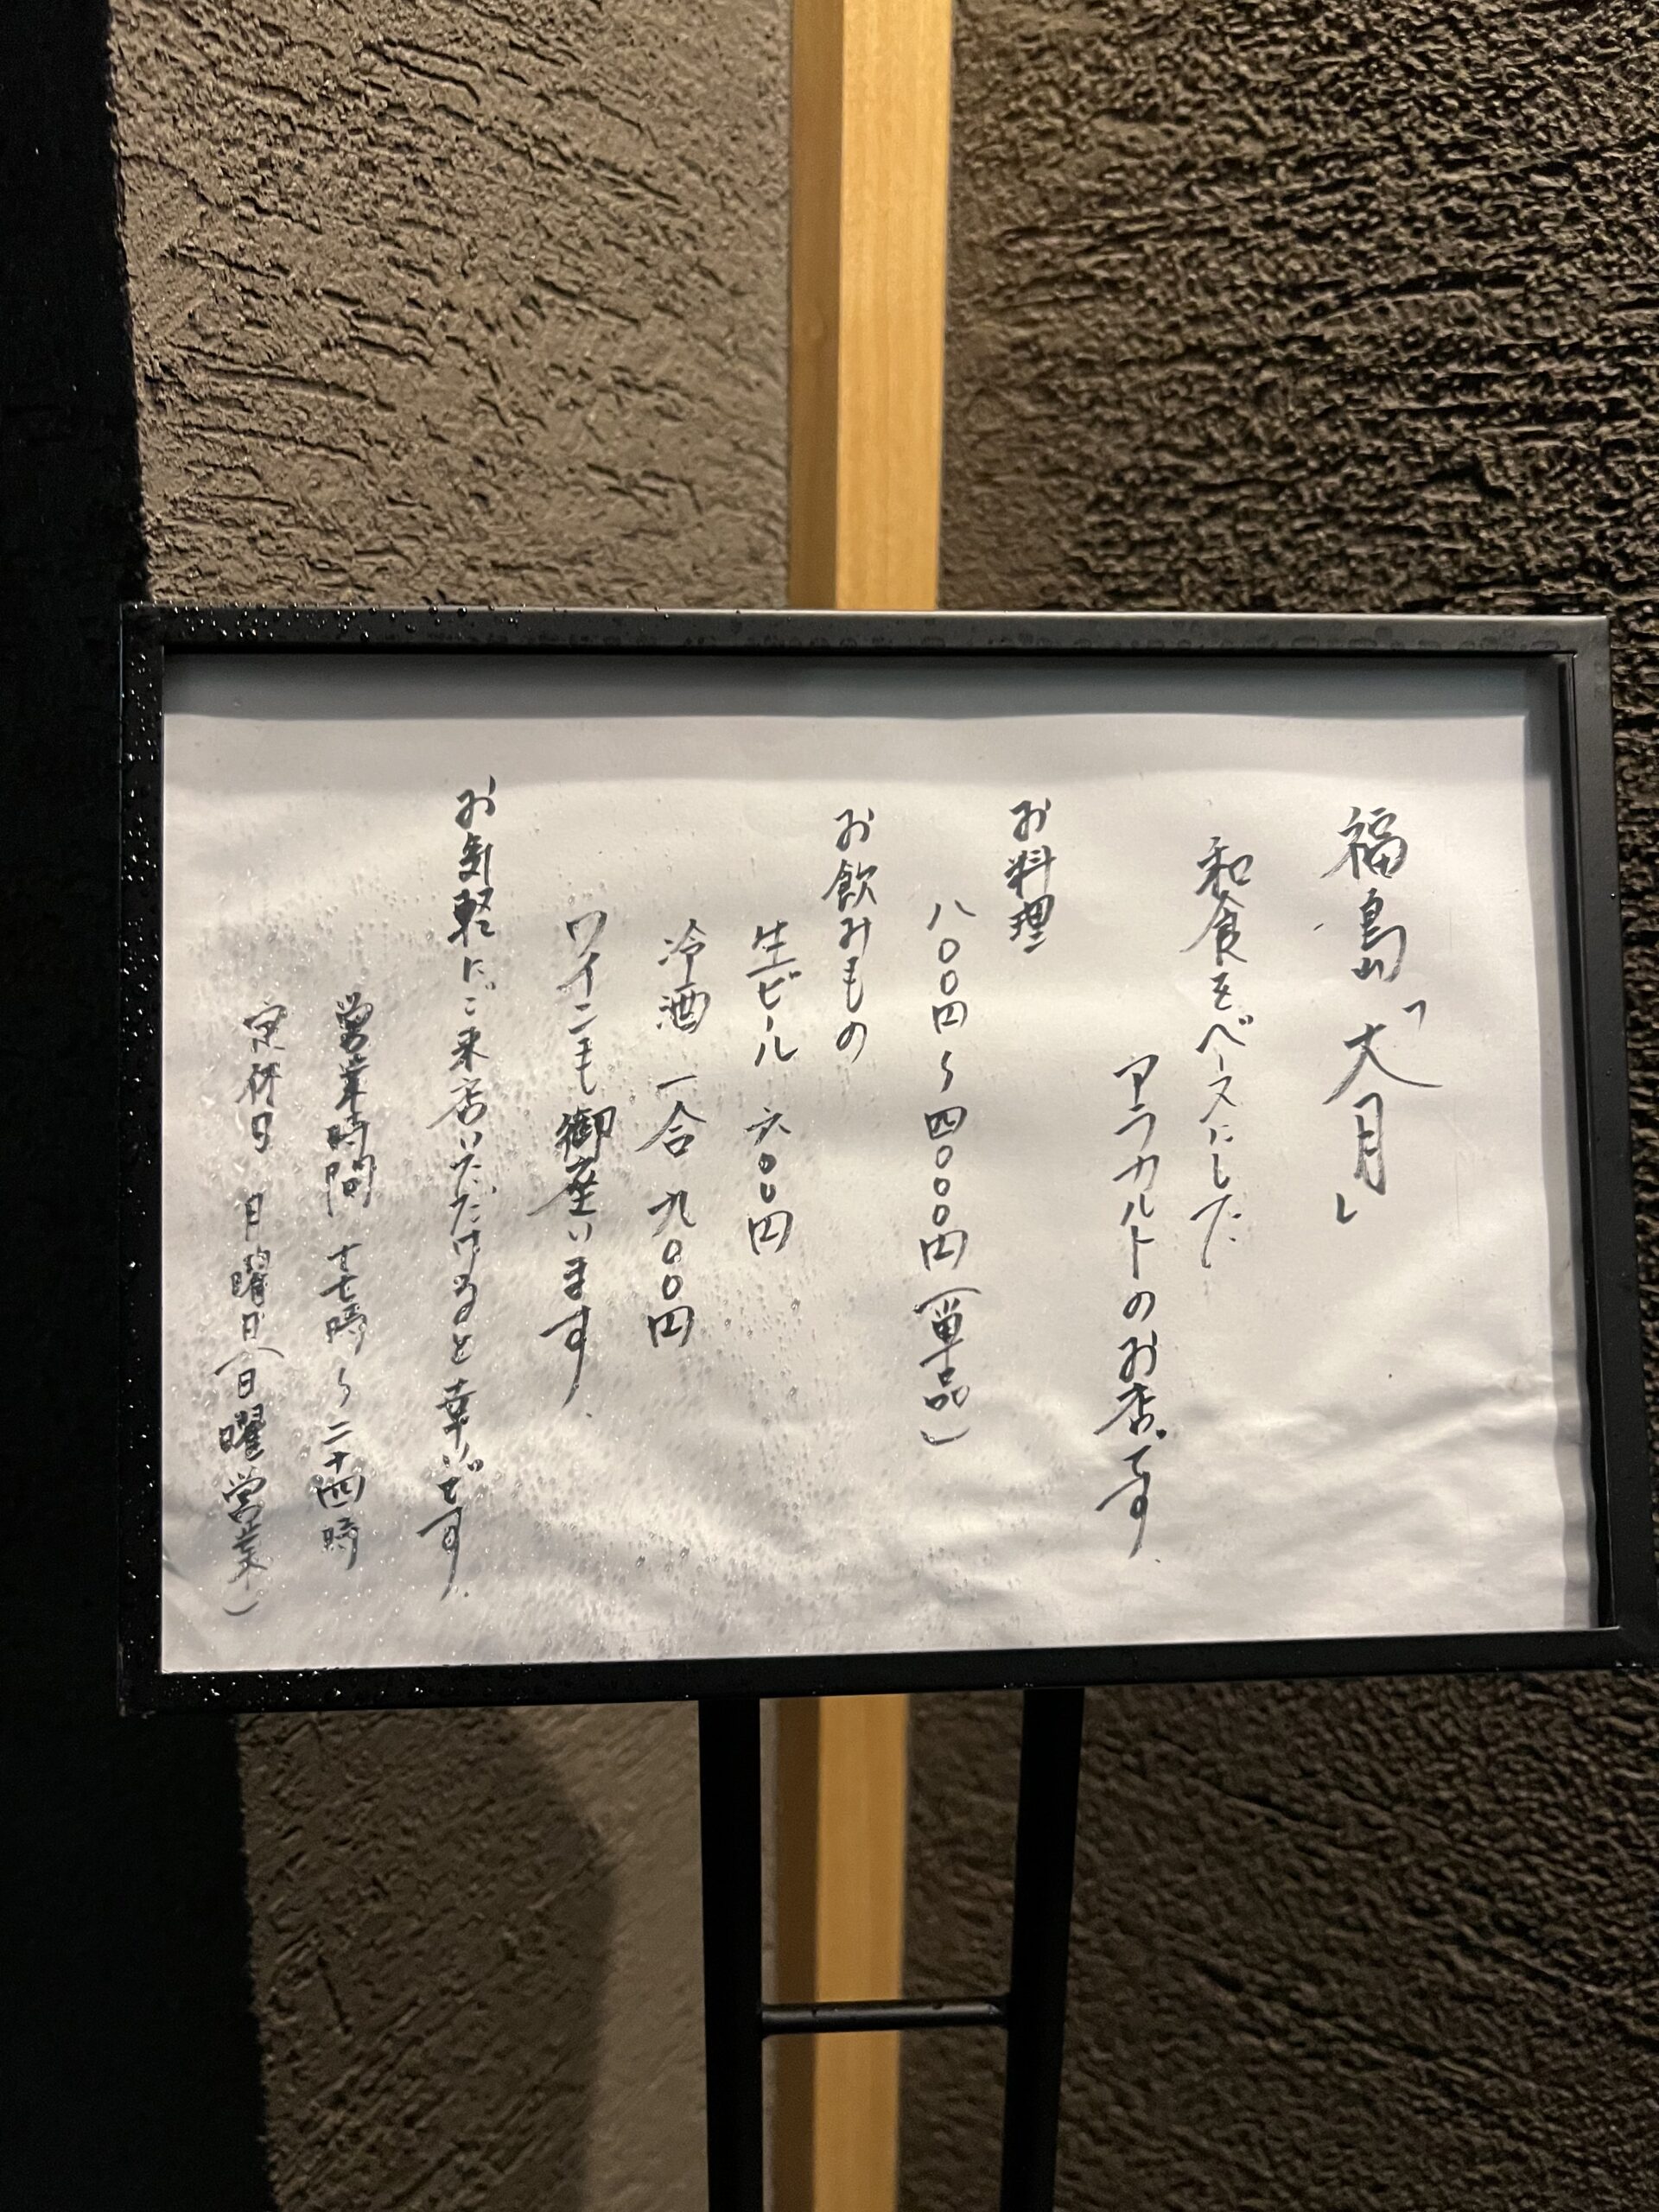 福島「大月」
和食をベースにした
アラカルトのお店です
お料理
八〇〇円〜四〇〇〇円（単品）
お飲みもの
生ビール 六〇〇円
冷酒 一合 九〇〇円
ワインも御座います
お気軽にご来店いただけると幸いです
営業時間 十七時〜二十四時
定休日 月曜日（日曜営業）